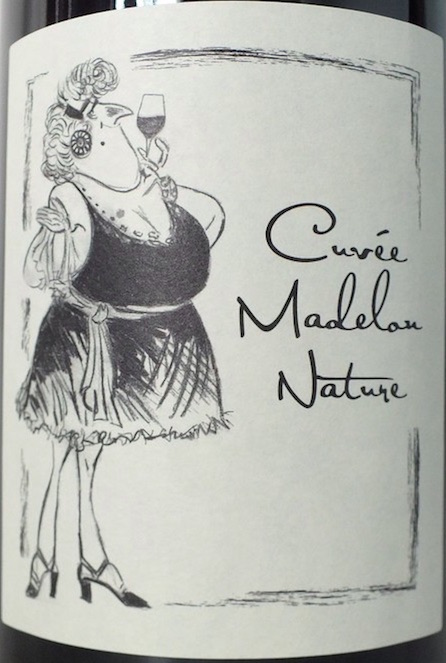 Cuvée
Madelon
Nature